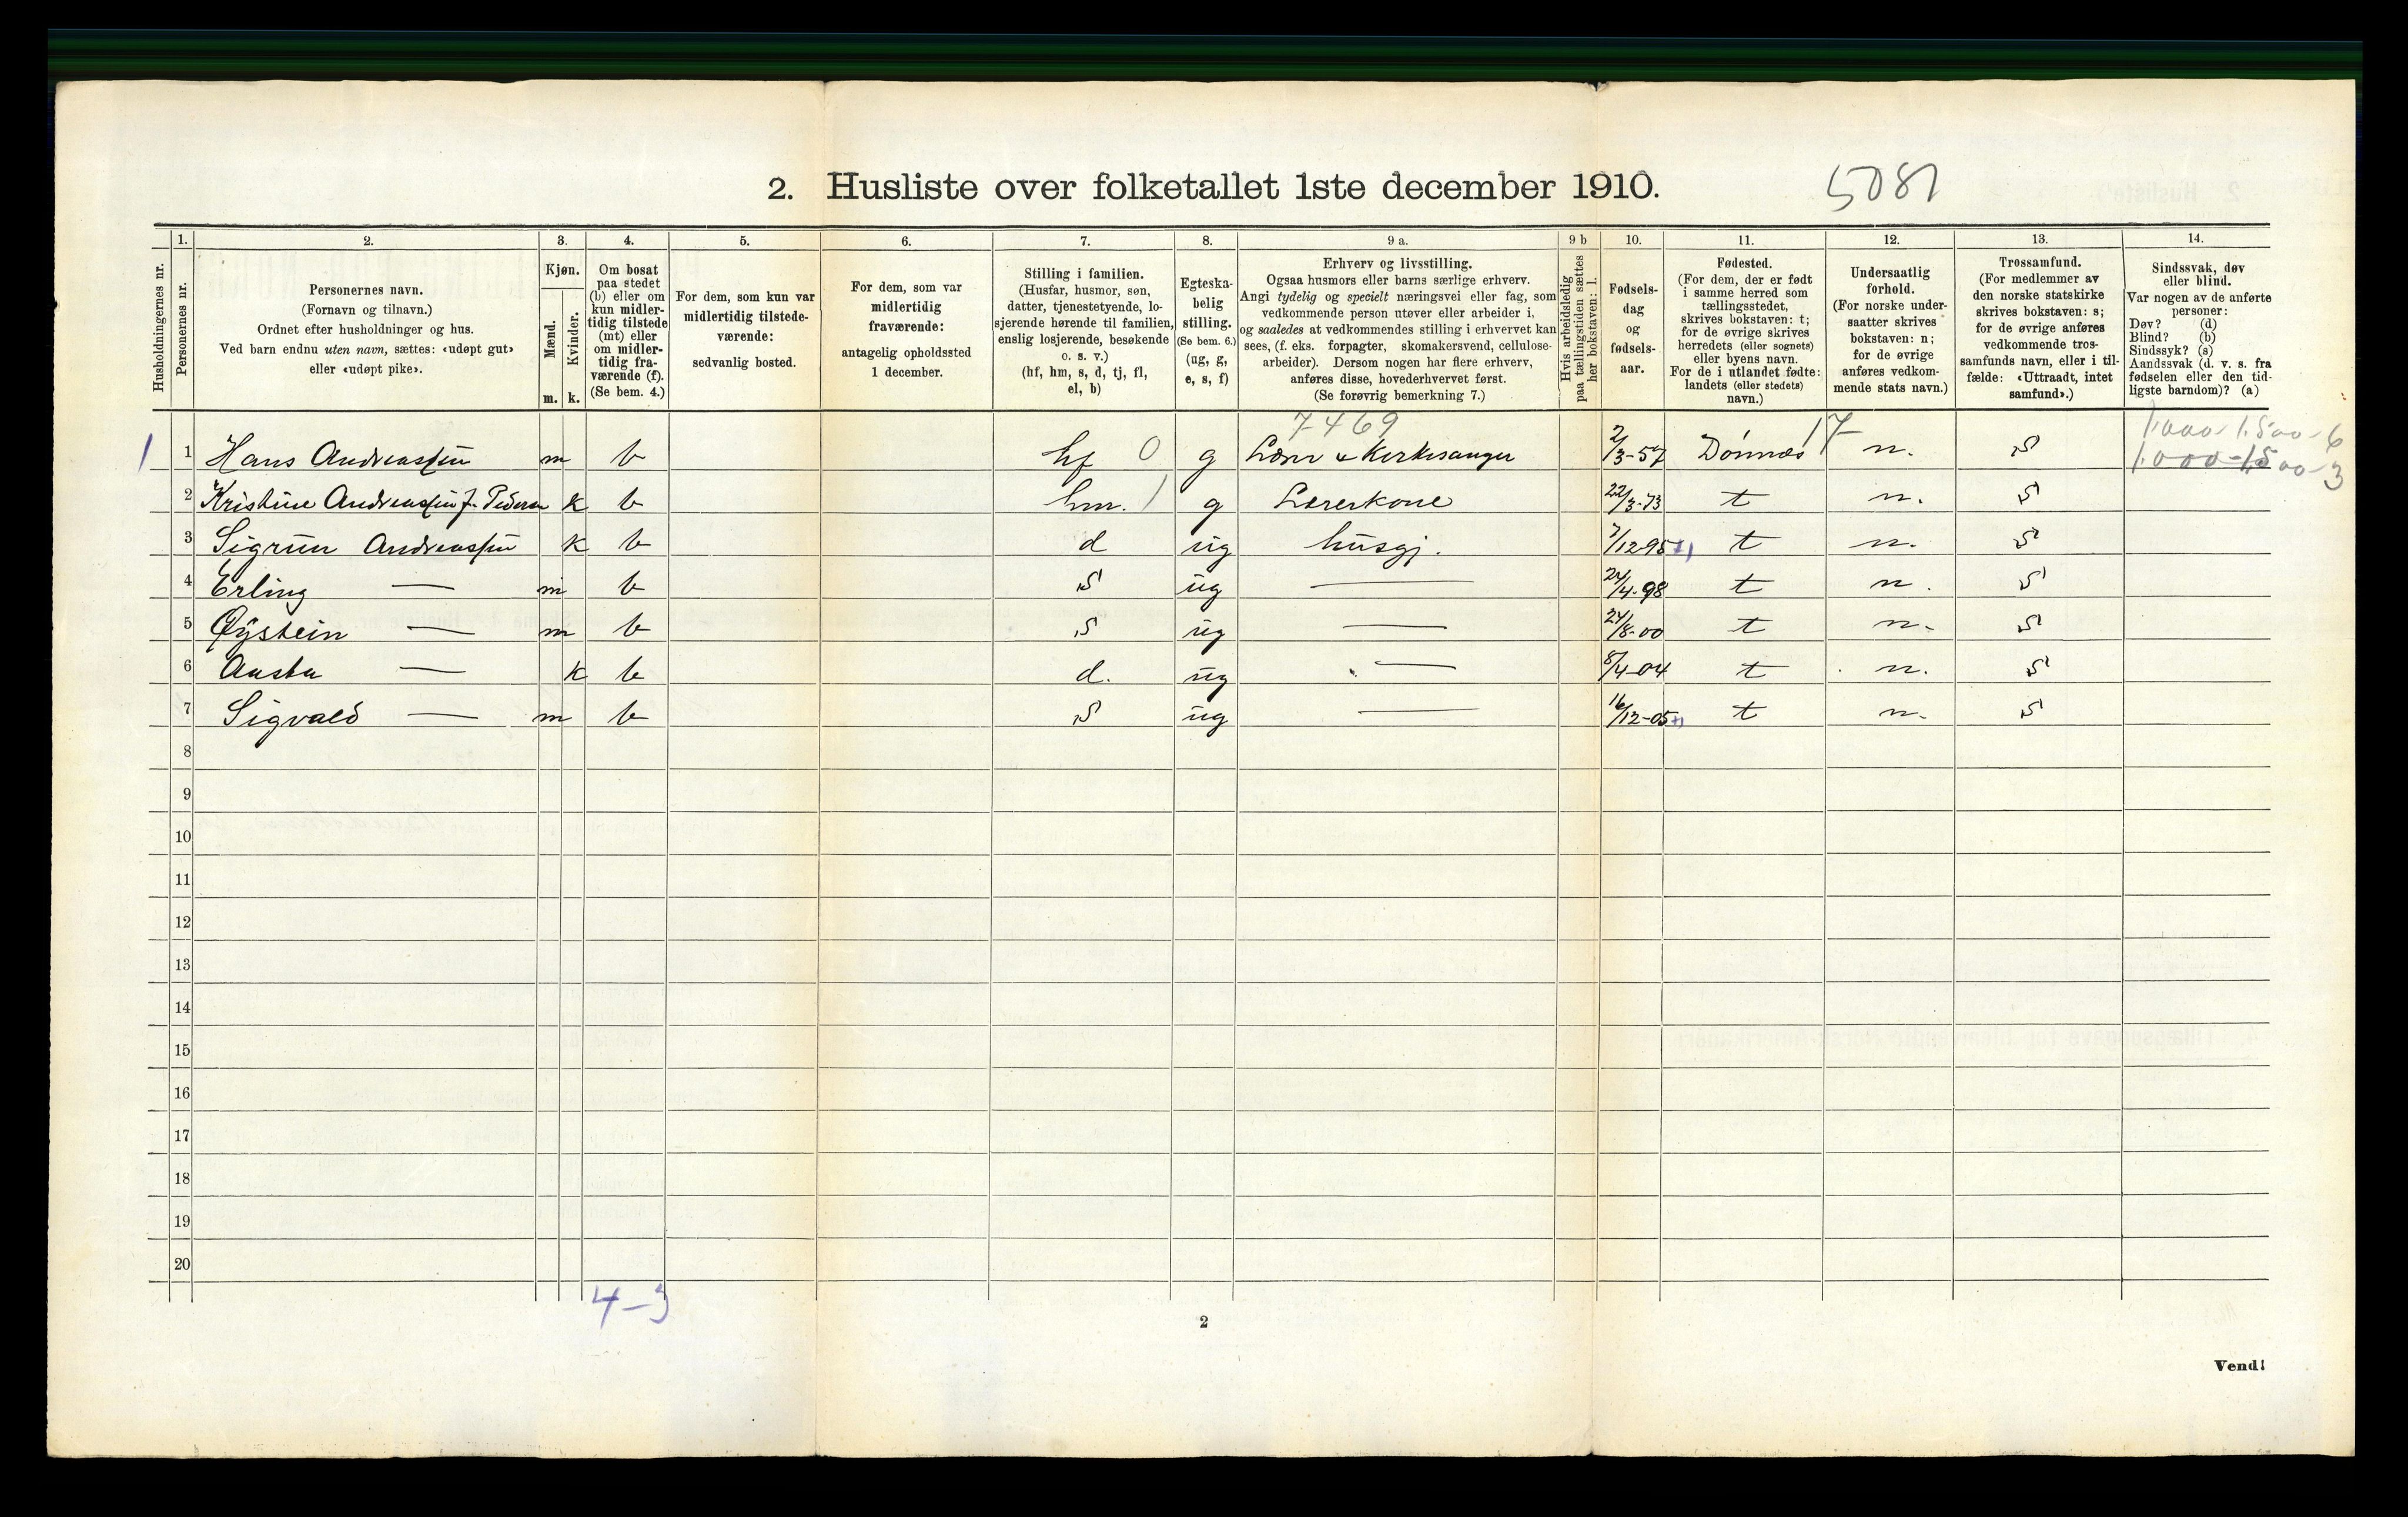 2. Husliste over folketallet 1ste december 1910. 5081
Husholdningernes nr.
1. Personernes nr.
2. Personernes navn.
(Fornavn og tilnavn.)
Ordnet efter husholdninger og hus.
Ved barn endnu uten navn, sættes: «udøpt gut»
eller «udøpt pike».
3. Kjøn.
Mænd. Kvinder.
m. k.
4. Om bosat
paa stedet
(b) eller om
kun midler-
tidig tilstede
(mt) eller
om midler-
tidig fra-
værende (f).
(Se bem. 4.)
5. For dem, som kun var
midlertidig tilstede-
værende:
sedvanlig bosted.
6. For dem, som var
midlertidig
fraværende:
antagelig opholdssted
1 december.
7. Stilling i familien.
(Husfar, husmor, søn,
datter, tjenestetyende, lo-
sjerende hørende til familien,
enslig losjerende, besøkende
o. s. v.)
(hf, hm, s, d, tj, fl,
el, b)
8. Egteska-
belig
stilling.
(Se bem. 6.)
(ug, g,
e, s, f)
9 a. Erhverv og livsstilling.
Ogsaa husmors eller barns særlige erhverv.
Angi tydelig og specielt næringsvei eller fag, som
vedkommende person utøver eller arbeider i,
og saaledes at vedkommendes stilling i erhvervet kan
sees, (f. eks. forpagter, skomakersvend, cellulose-
arbeider). Dersom nogen har flere erhverv,
anføres disse, hovederhvervet først.
(Se forøvrig bemerkning 7.)
9 b Hvis arbeidsledig
paa tællingstiden sættes
her bokstaven: l.
10. Fødsels-
dag
og
fødsels-
aar.
11. Fødested.
(For dem, der er født
i samme herred som
tællingsstedet,
skrives bokstaven: t;
for de øvrige skrives
herredets (eller sognets)
eller byens navn.
For de i utlandet fødte:
landets (eller stedets)
navn.)
12. Undersaatlig
forhold.
(For norske under-
saatter skrives
bokstaven: n;
for de øvrige
anføres vedkom-
mende stats navn.)
13. Trossamfund.
(For medlemmer av
den norske statskirke
skrives bokstaven: s;
for de øvrige anføres
vedkommende tros-
samfunds navn, eller i til-
fælde: «Uttraadt, intet
samfund».)
14. Sindssvak, døv
eller blind.
Var nogen av de anførte
personer:
Døv? (d)
Blind? (b)
Sindssyk? (s)
Aandssvak (d. v. s. fra
fødselen eller den tid-
ligste barndom)? (a)
7469 17 1.000-1.500-6
1 1 Hans Andreassen m b hf 0 g Lærer & Kirkesanger 2/3-57 Dönnæs n. S 1.000-1.500-3
2 Kristine Andreassen f. Pedersen k b hm. 1 g Lærerkone 22/3-73 t n. S
3 Sigrun Andreassen k b d ug husgj. 7/12-95 t n. S
4 Erling — m b S ug — 24/4-98 t n. S
5 Øystein — m b S ug — 24/8-00 t n. S
6 Aasta — k b d. ug — 8/4-04 t n. S
7 Sigvald — m b S ug — 16/12-05 t n. S
8
9
10
11
12
13
14
15
16
17
18
19
20
4-3
2
Vend!